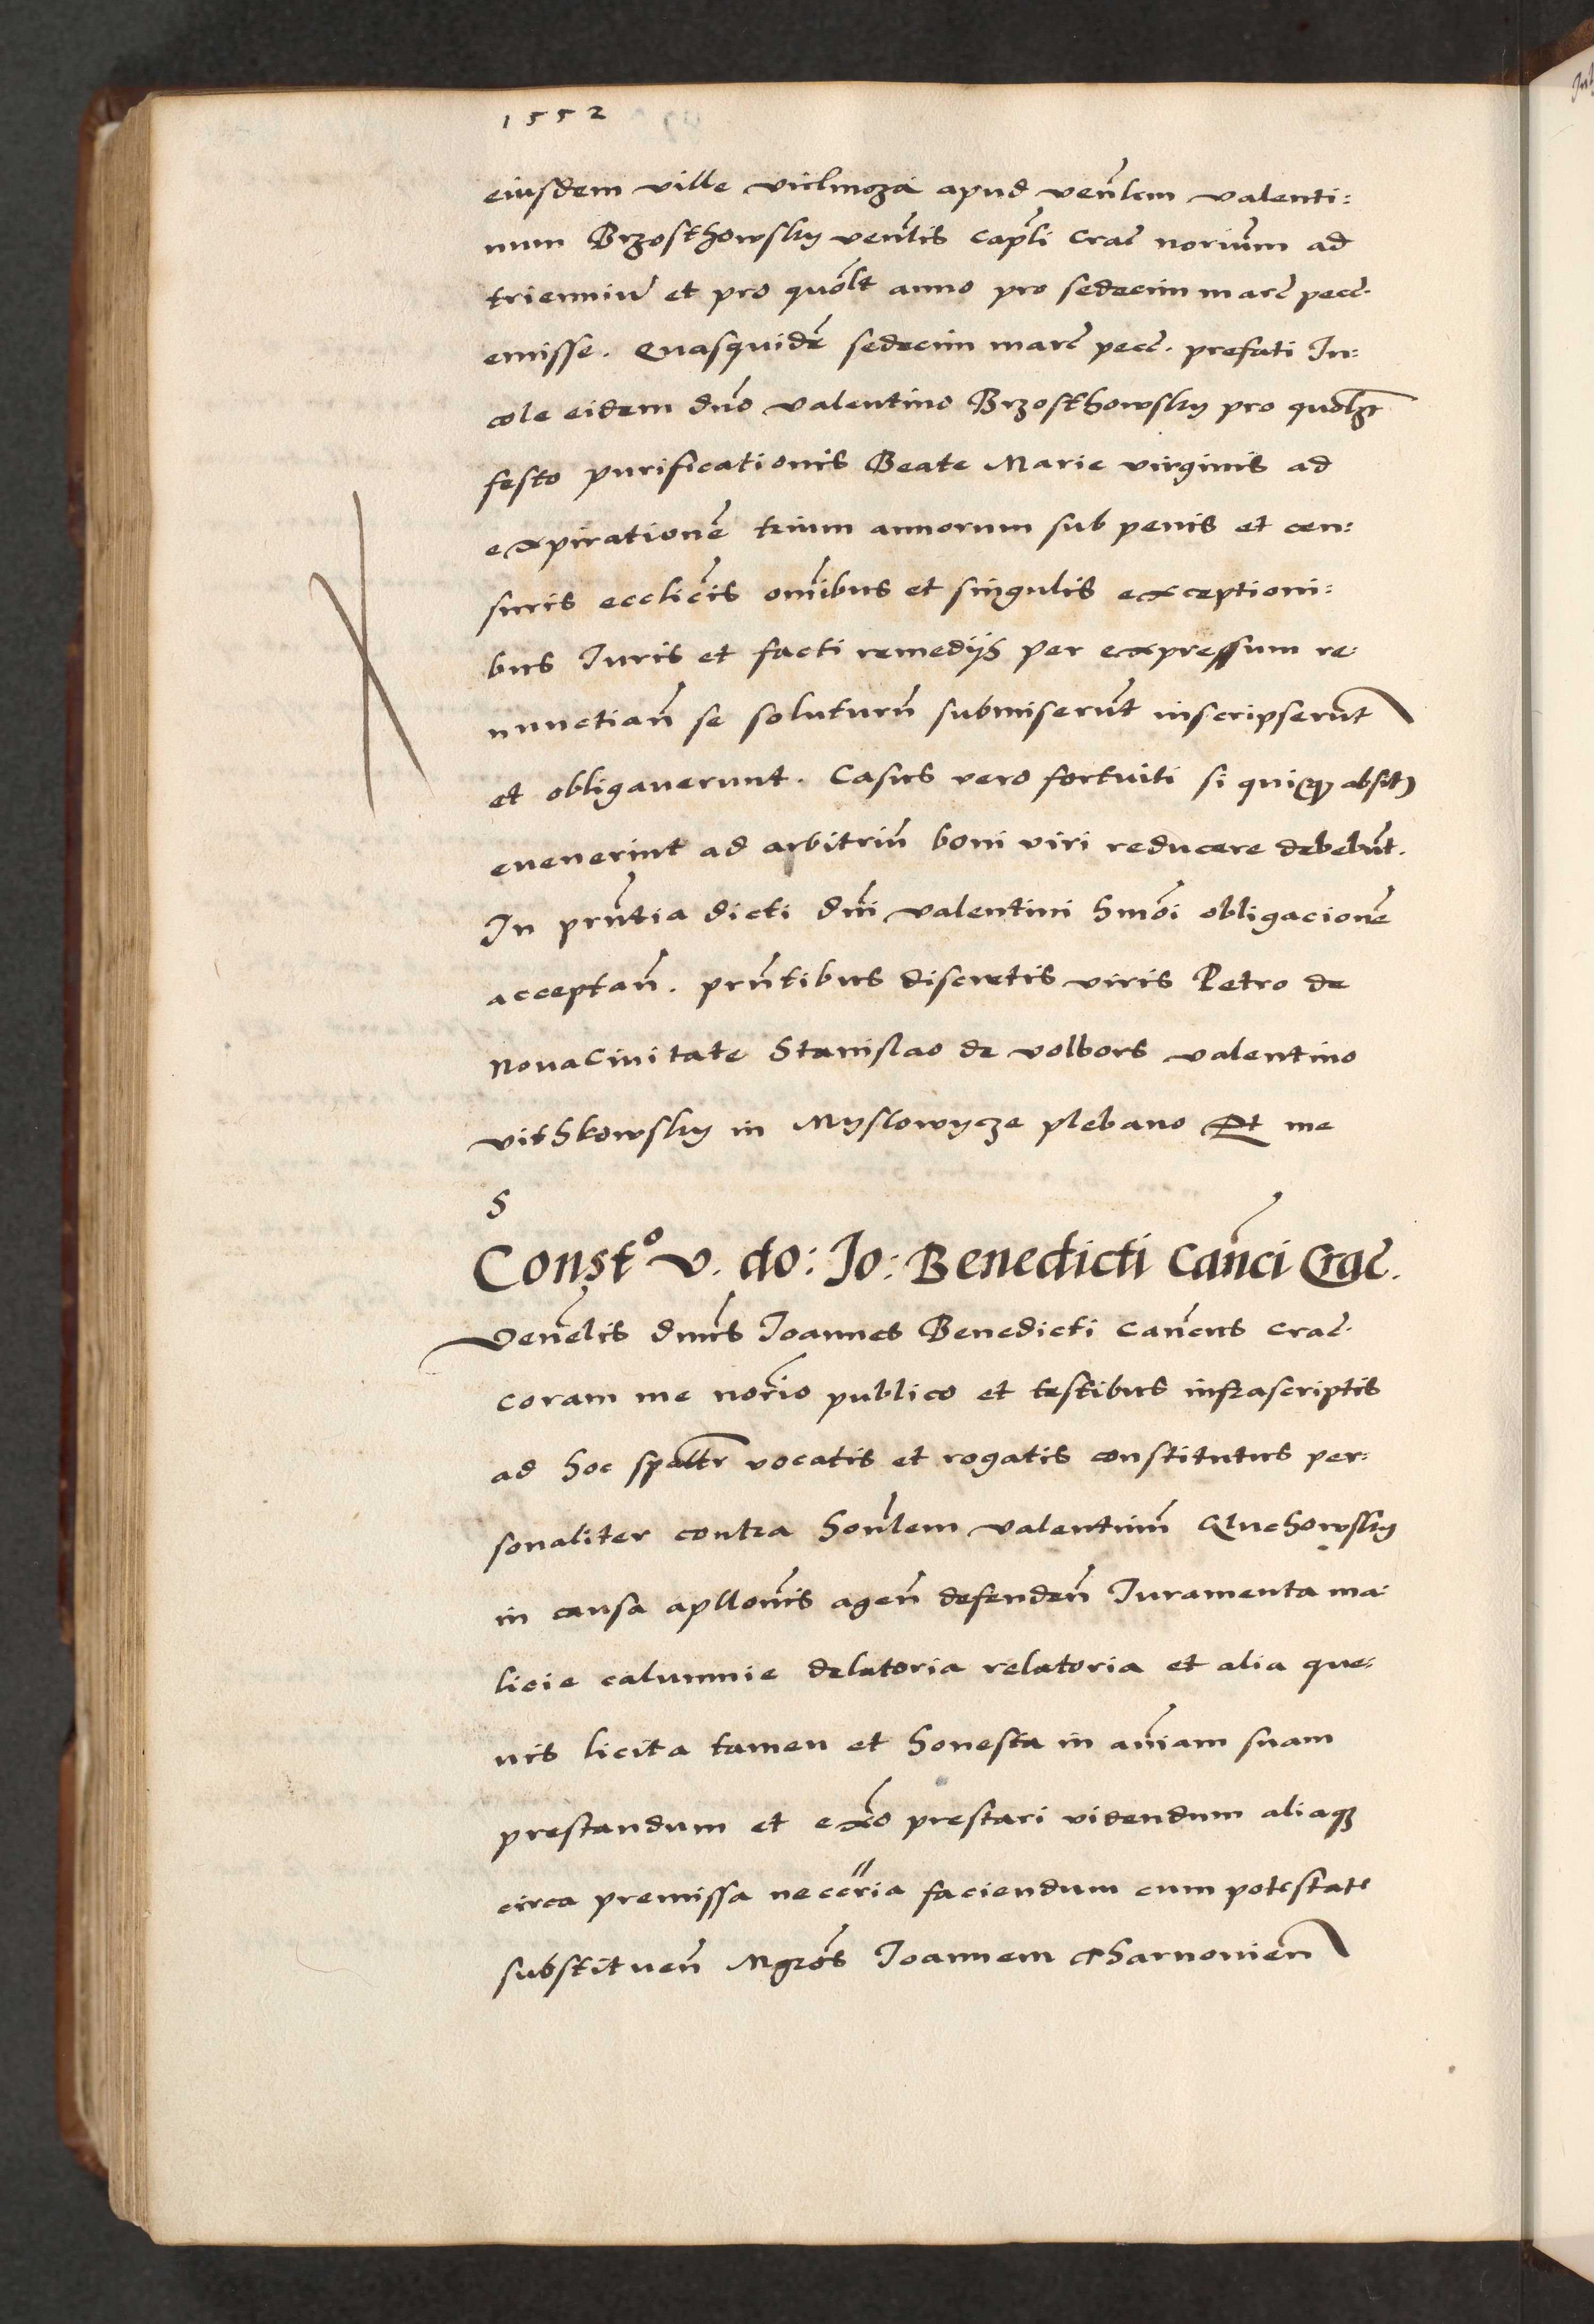 1552
eiusdem ville vielmoza apud venlem valenti:
num Brzosthowsky venlis capli Crac norium ad
trienniu et pro quolt anno pro sedecim marc pecc.
emisse. Quasquide sedecim marc pecc. prefati In:
cole eidem dno valentino Brzosthowsky pro quolzt
festo purificationis Beate Marie virginis ad
expiratione trium annorum sub penis et cen:
suris ecclicis omibus et singulis exceptioni:
bus Iuris et facti remedijs per expressum re:
nunctian se soluturn submiserut inscripserut
et obligauerunt. Casus vero fortuiti si qui (qz absit)
euenerint ad arbitriu boni viri reducere debebut.
In prntia dicti dni valentini hmoi obligacione
acceptan. prntibus discretis viris Petro de
Nova Civitate Stanislao de volbors valentino
vithkowsky in Myslowycze plebano Et me
S
Constº v. do: Io: Benedicti Canci Crac.
Venelis dnus Ioannes Benedicti Cancus Crac.
coram me norio publico et testibus infrascriptis
ad hoc spealtr vocatis et rogatis constitutus per:
sonaliter contra honlem valentinu Gluchowsky
in causa apllonis agen defenden Iuramenta ma:
licie calumnie delatoria relatoria et alia que:
uis licita tamen et honesta in aniam suam
prestandum et exo prestari videndum aliaqz
circa premissa necceria faciendum cum potestate
substituen Mgros Ioannem Tharnovien